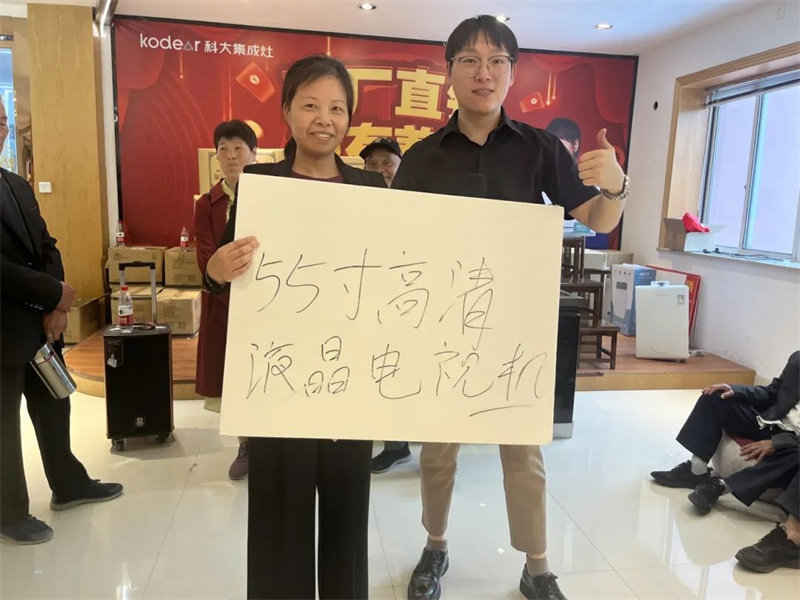 kodear 科大集成灶
厂直
55寸高清
液晶电视机